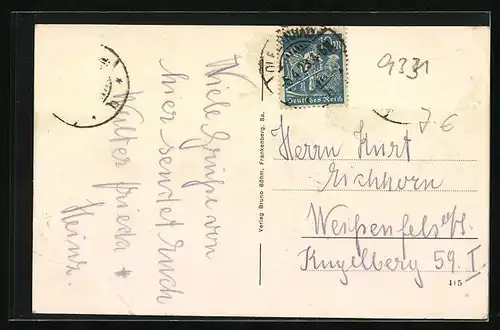 Viele Grüße von
hier sendet Euch
Walter Frieda +
Heinz.
Verlag Bruno Böhm, Frankenberg, Sa.
Deutsches Reich
9331
Herrn Kurt
Eichhorn
Weißenfels a/S.
Kugelberg 59. I.
115